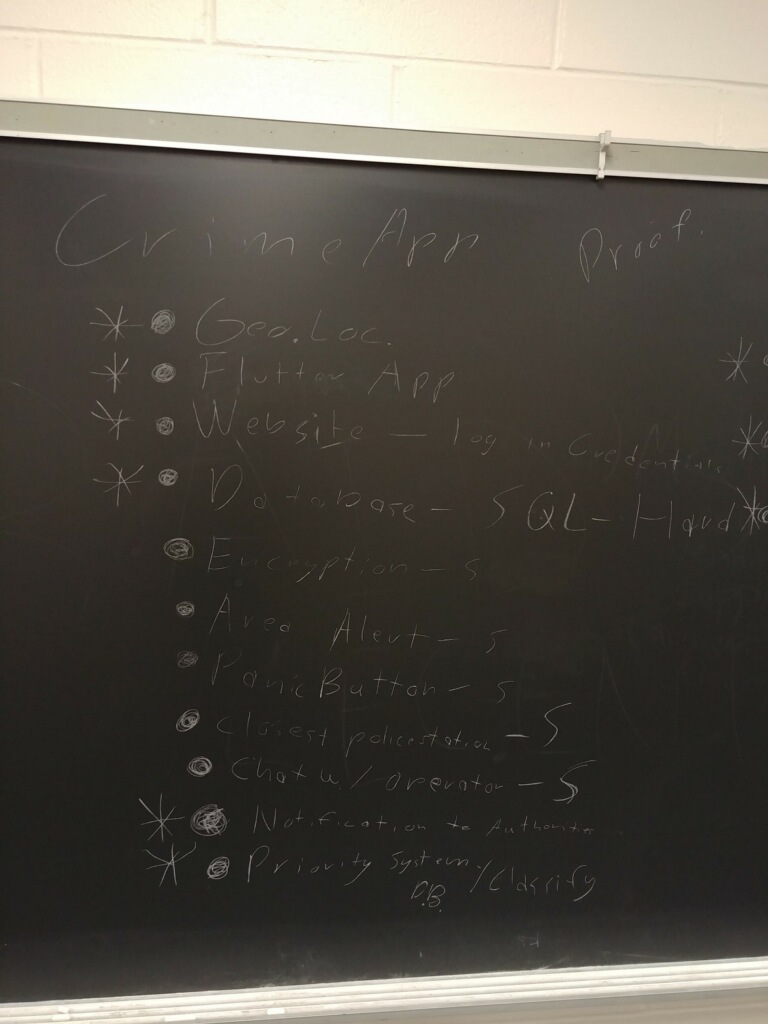 Crime App Proof.
* • Geo. Loc.
* • Flutter App
* • Website — log in Credentials
* • Database — SQL — Hard
• Encryption — S
• Area Alert — S
• Panic Button — S
• Closest policestation — S
• Chat w/ operator — S
* • Notification to Authorities
* • Priority System / Classify
D.B.